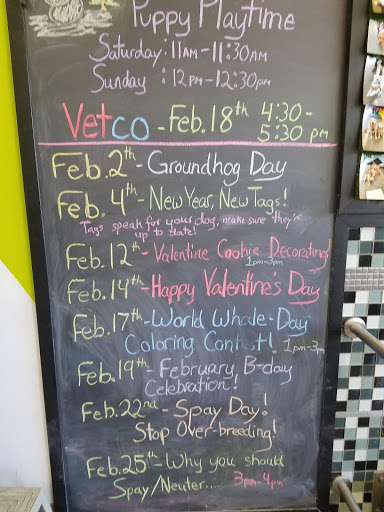 Puppy Playtime
Saturday: 11AM-11:30AM
Sunday : 12PM-12:30PM
Vetco - Feb. 18th 4:30-
5:30 pm
Feb. 2th - Groundhog Day
Feb. 4th - New Year, New Tags!
Tags speak for your dog, make sure they're
up to date!
Feb. 12th - Valentine Cookie Decorating
1pm-3pm
Feb. 14th - Happy Valentine's Day
Feb. 17th - World Whale-Day
Coloring Contest! 1pm-3pm
Feb. 19th - February B-day
Celebration!
Feb. 22nd - Spay Day!
Stop Over-breeding!
Feb. 25th - Why you should
Spay/Neuter.... 3pm-4pm